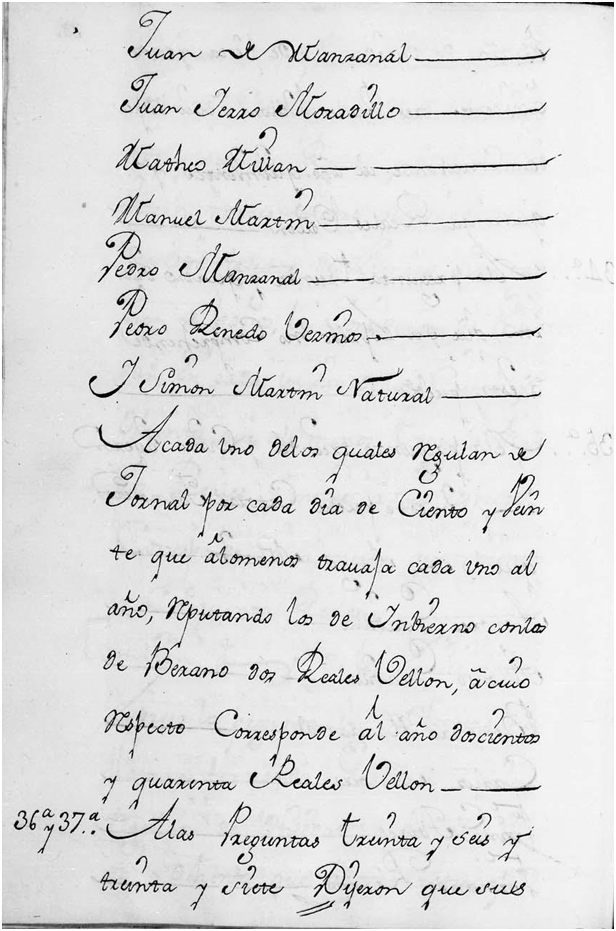 Juan de Manzanal
Juan Ferro Moradillo
Matheo Millan
Manuel Martin
Pedro Manzanal
Pedro Renedo Vermos
I Simon Martin Natural
Acada vno delos quales regulan de
Jornal por cada dia de Ciento y Vein
te que àlomenos trauaja cada vno al
año, reputando los de Inbierno conlos
de Berano dos Reales Vellon, à cuio
respecto Corresponde àl año doscientos
y quarenta Reales Vellon
36ª y 37.ª Alas Preguntas treinta y seis y
treinta y siete Dijeron que sus